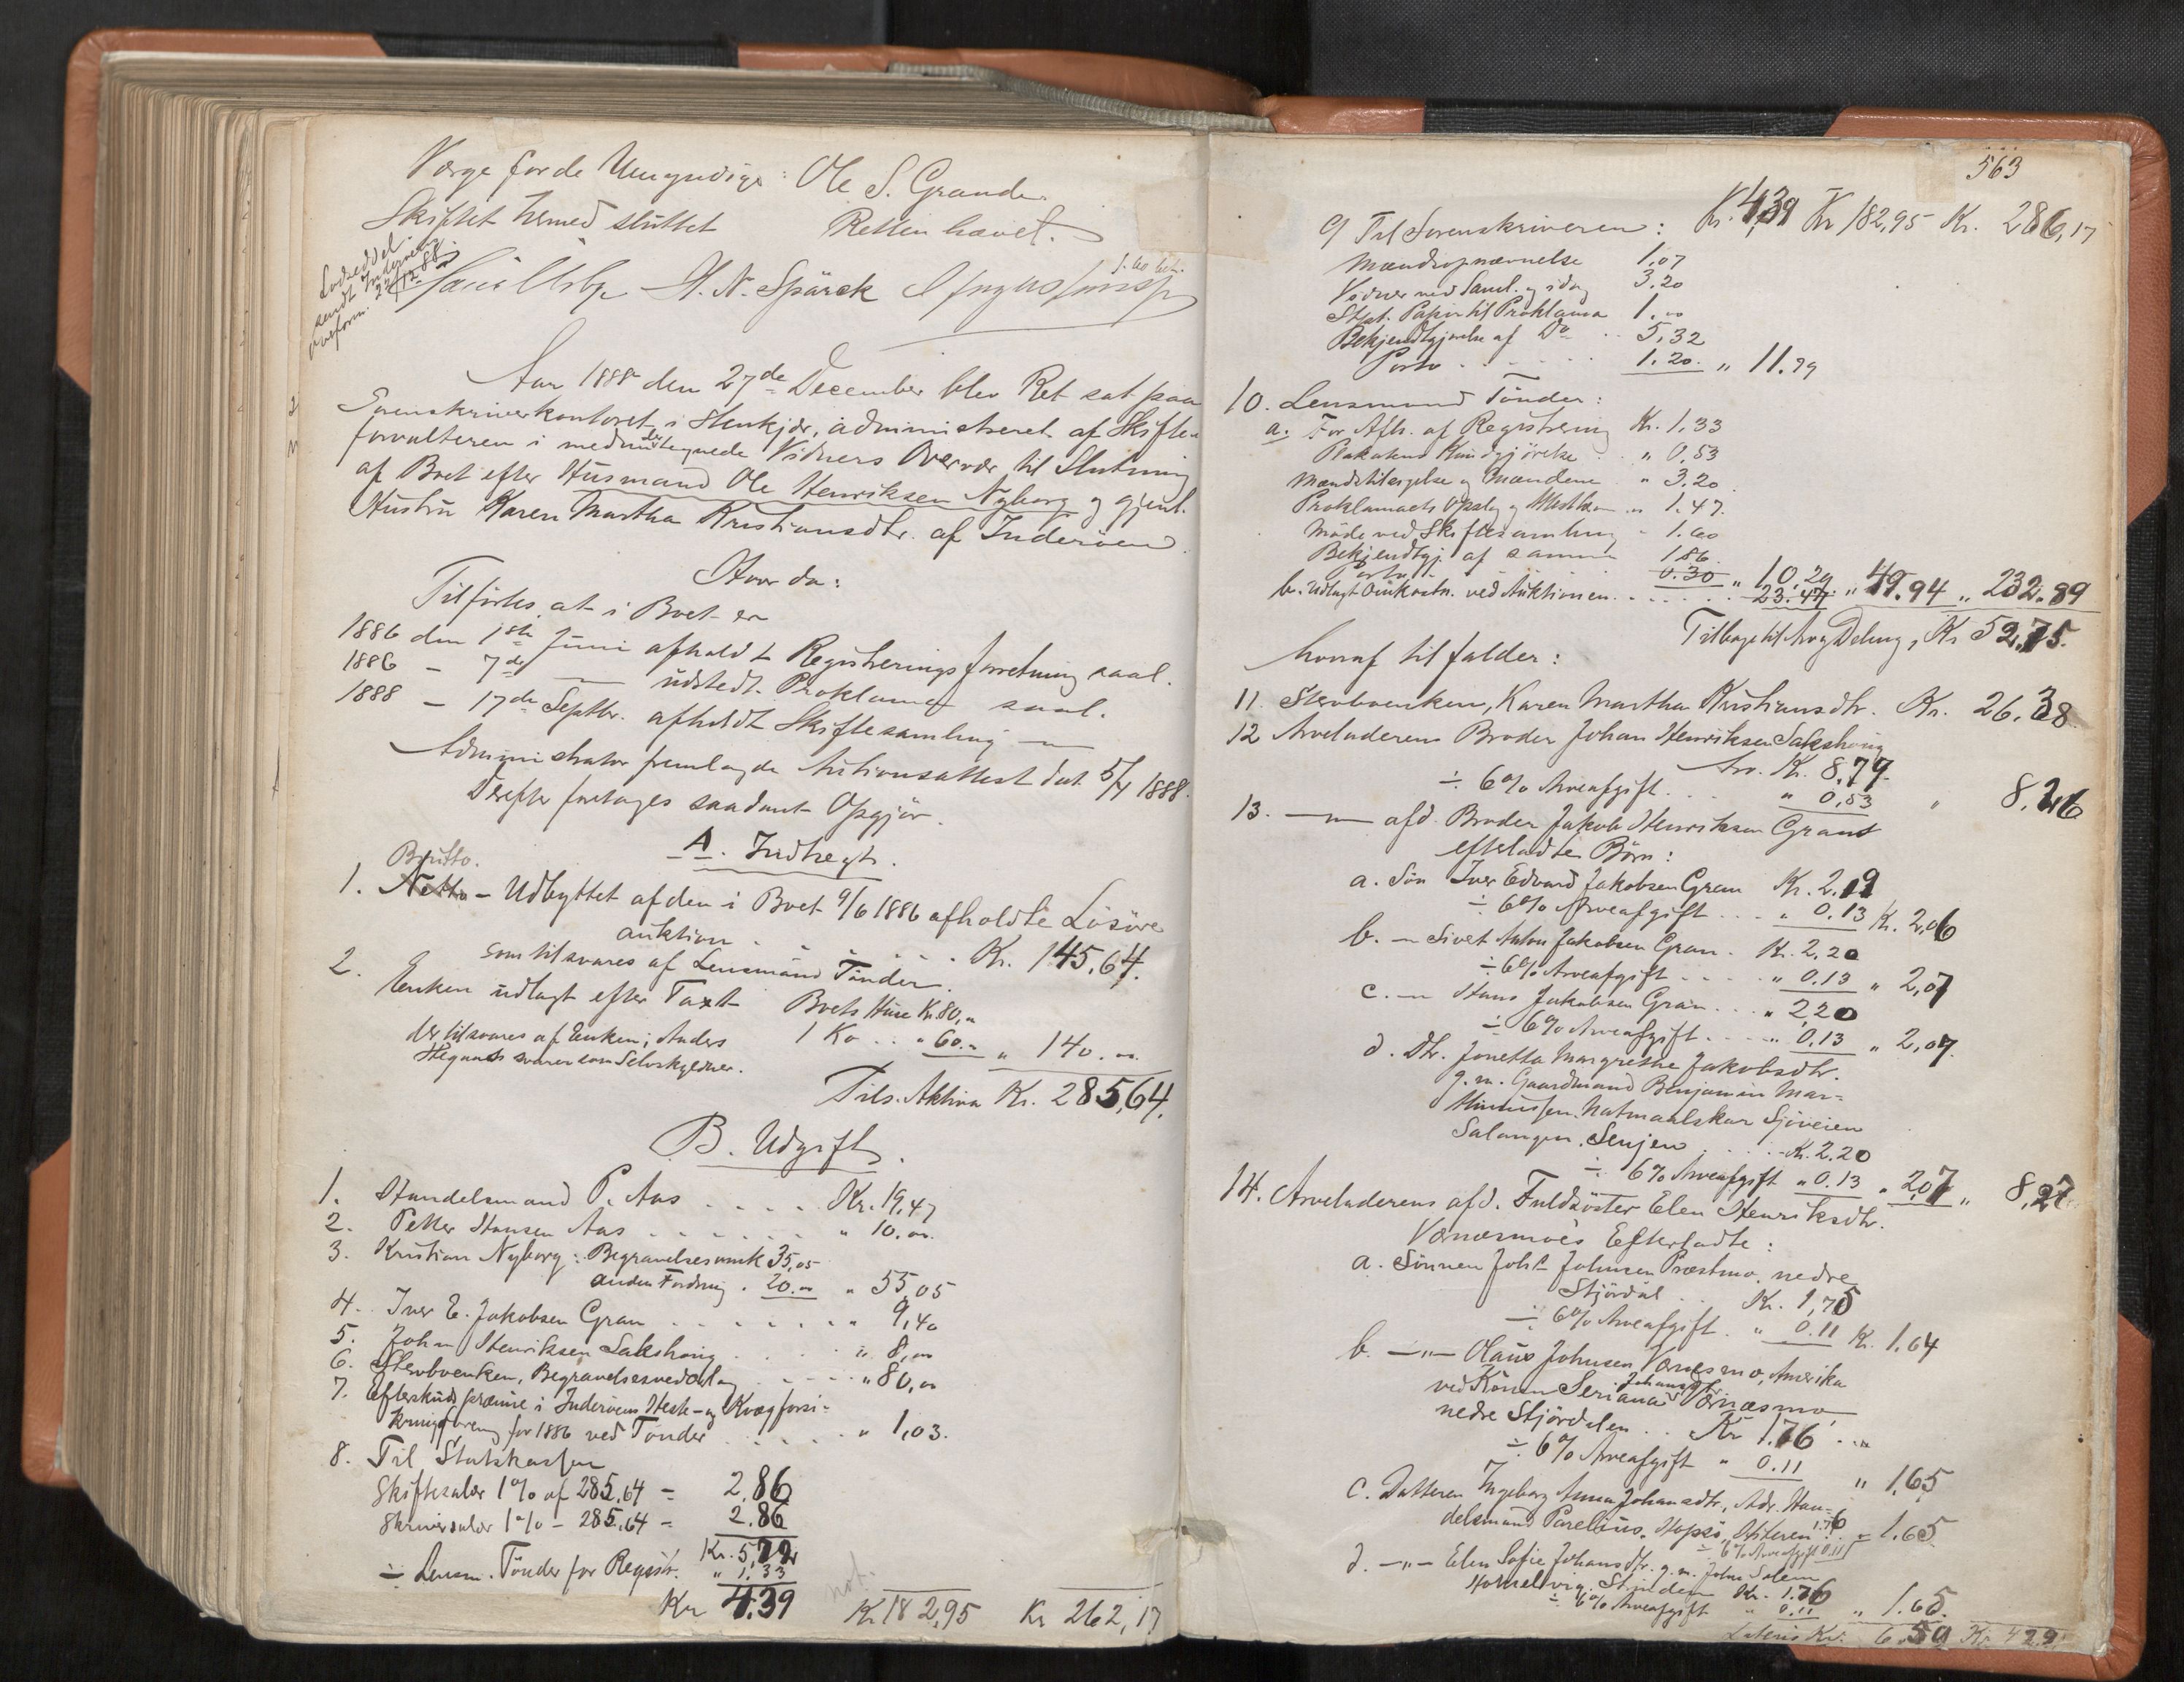 Værge for de Umyndige: Ole S. Grande.
Skiftet hermed sluttet Retten hævet.
Lodseddel
sendt Inderøens
22/12 88
H. N. Spärck
Aar 1888 den 27de December blev Ret sat paa
Sorenskriverkontoret i Stenkjær, administreret af Skifte-
forvalteren i medundertegnede Vidners Overvær til Slutning
af Boet efter Husmand Ole Henriksen Nyborg og gjenl.
Hustru Karen Martha Kristiansdtr. af Inderøen.
Hvor da:
Tilførtes at i Boet er
1886 den 1ste Juni afholdt Registreringsforretning saal.
1886 – 7de — udstedt Proklama saal.
1888 – 17de Septbr. afholdt Skiftesamling —
Administrator fremlagde Auktionsattest dat. 5/4 1888.
Derefter foretoges saadant Opgjør.
A. Indtegt.
Brutto.
1. Netto – Udbyttet af den i Boet 9/6 1886 afholdte Løsøre
auktion . . . . Kr. 145,64.
som tilsvares af Lensmand Tønder.
2. Enken udlagt efter Taxt Boets Huse Kr. 80,„
1 Ko . . „ 60.- „ 140. „
der tilsvares af Enken; Anders
Hegnads svarer som Selvskyldner.
Tils. Aktiva Kr. 285,64.
B. Udgift.
1. Handelsmand P. Aas . . . . Kr. 19,47
2. Petter Hansen Aas . . . . . „ 10.„
3. Kristian Nyborg: Begravelsesomk 35,05
anden Fordring . 20.„ „ 55,05
4. Iver E. Jakobsen Gran . . . . . „ 9,40
5. Johan Henriksen Sakshaug . . . . „ 8,„
6. Stervboenken, Begravelsesvederlag . . . . „ 80,„
7. Efterskudspræmie i Inderøens Heste- og Kvægforsi-
kringsforening for 1886 ved Tønder . . . . „ 1,03.
8. Til Statskassen
Skiftesalær 1% af 285,64 = 2,86
Skriversalær 1% – 285,64 = 2.86
Kr. 5,72
÷ Lensm. Tønder for Registr. „ 1,33
Kr 4,39 Kr 182,95 Kr 262,17
563
Kr. 4,39 Kr 182,95 Kr. 286,17
9 Til Sorenskriveren:
Mændsopnævnelse 1,07
Vidner ved Saml. og idag 3,20
Stpl. Papir til Proklama 1.„
Bekjendtgjørelse af Do . . 5,32
Porto . . . . . 1.20. „ 11.79
10. Lensmand Tønder:
a. For Afh. af Registrering Kr. 1,33
Plakatens Kundgjørelse . . „ 0,53
Mændstilsigelse og Mændene „ 3.20
Proklamaets Opslag og „ 1.47.
Møde ved Skiftesamling - 1.60
Bekjendtgj. af samme 1.86
Porto 0.30 „ 10.29
b. Udlagt Omkostn. ved Auktionen . . . . . 23.47 „ 49.94 „ 232.89
Tilbage til Arv og Deling, Kr 52,75.
hvoraf tilfalder:
11. Stervboenken, Karen Martha Kristiansdtr. Kr. 26.38
12 Arveladerens Broder Johan Henriksen Sakshaug
Arv. Kr. 8,79.
÷ 6% Arveafgift . . . „ 0,53 „ 8,26
13. —„— afd. Broder Jakob Henriksen Grans
efterladte Børn:
a. Søn Iver Edvard Jakobsen Gran Kr. 2.19
÷ 6% Arveafgift . . . „ 0.13 Kr. 2,06
b. —„ Sivert Anton Jakobsen Gran . Kr. 2,20
÷ 6% Arveafgift . . . . „ 0.13 „ 2,07
c. —„ Hans Jakobsen Gran . . . „ 2,20
÷ 6% Arveafgift . . . . „ 0.13 „ 2,07.
d. Dtr. Jonetta Margrethe Jakobsdtr.
g. m. Gaardmand Benjamin Mar-
Sjøveien
Salangen. Senjen . . . . Kr. 2.20
÷ 6% Arveafgift „ 0.13 „ 2,07 „ 8,27
14. Arveladerens afd. Fuldsøster Elen Henriksdtr.
Værnæsmoes Efterladte:
a. Sønnen Johs Johnsen Præstmo, nedre
Stjørdal . . Kr. 1,75
÷ 6% Arveafgift . „ 0.11 Kr. 1.64
b. —„— Olaus Johnsen Værnesmo, Amerika
ved Konen Seriana Johansdtr. Værnæsmo,
nedre Stjørdalen . . Kr 1.76 . „
÷ 6% Arveafgift „ 0.11 „ 1,65
c. Datteren Ingeborg Anna Johansdtr, Adr. Han-
delsmand Parelius, Hopsø, Hiteren 1.76
÷ 6% Arveafgift 0.11 „ 1.65
d. —„— Elen Sofie Johansdtr. g. m. John Solem
Strinden Kr. 1.76
÷ 6% Arveafgift „ 0.11 „ 1.65.
Lateris Kr. 6.59 Kr 42.91